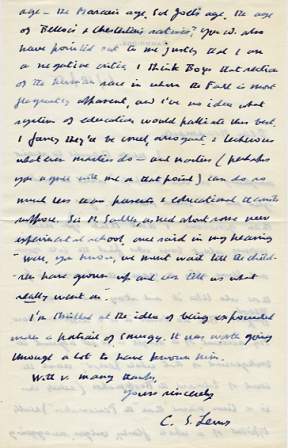 age – the Marcian age, Sal Jock's age, the age
of Belloc's & Chesterton's satires? You cd. also
have pointed out to me justly that I am
a negative critic. I think Boys that section
of the human race in whom the Fall is most
flagrantly apparent, and I've no idea what
system of education would palliate this best.
I fancy they'd be cruel, arrogant, & lecherous
whatever masters do – and masters (perhaps
you agree with me on that point) can do so
much less than parents & educational theorists
suppose. Sir M. Sadler, asked about some new
experimental school, once said in my hearing
"Well, you know, we must wait till the child-
ren have grown up and can tell us what
really went on".
I'm thrilled at the idea of being expounded
under a portrait of Smugy. It was worth going
through a lot to have known him.
With v. many thanks
Yours sincerely
C. S. Lewis